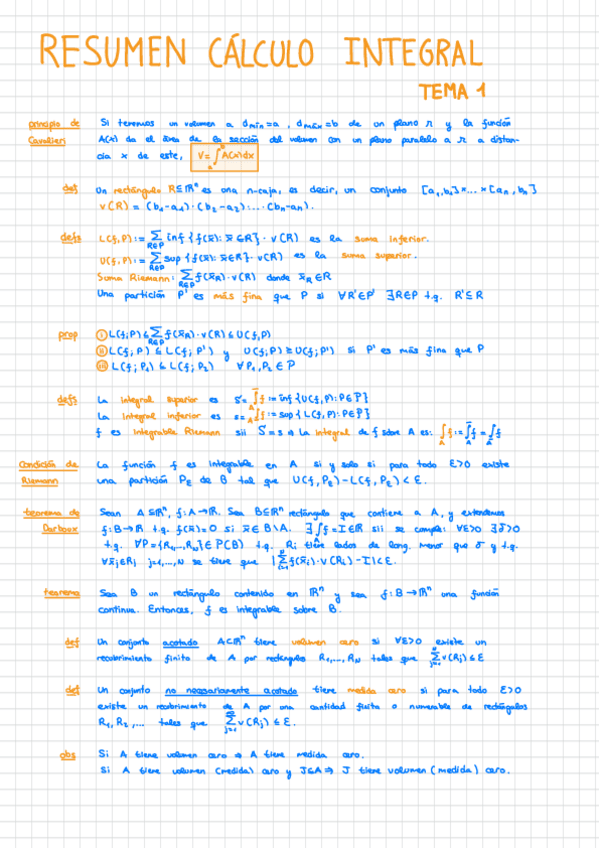 RESUMEN CÁLCULO INTEGRAL
TEMA 1
principio de Cavalieri Si tenemos un volumen a dmín=a, dmáx=b de un plano π y la función
A(x) da el área de la sección del volumen con un plano paralelo a π a distan-
cia x de este, V=∫_a^b A(x)dx
def Un rectángulo R⊆ℝⁿ es una n-caja, es decir, un conjunto [a₁,b₁]×...×[aₙ,bₙ]
v(R) = (b₁-a₁)·(b₂-a₂)·...·(bₙ-aₙ).
defs L(f,P):= ∑_{R∈P} inf{f(x̄): x̄∈R}·v(R) es la suma inferior.
U(f,P):= ∑_{R∈P} sup{f(x̄): x̄∈R}·v(R) es la suma superior.
Suma Riemann: ∑_{R∈P} f(x̄_R)·v(R) donde x̄_R∈R
Una partición P' es más fina que P si ∀R'∈P' ∃R∈P t.q. R'⊆R
prop i) L(f,P) ≤ ∑_{R∈P} f(x̄_R)·v(R) ≤ U(f,P)
ii) L(f,P) ≤ L(f,P') y U(f,P) ≥ U(f,P') si P' es más fina que P
iii) L(f,P₁) ≤ L(f,P₂) ∀P₁,P₂∈P
defs La integral superior es S= ∫̄_A f := inf{U(f,P): P∈P}
La integral inferior es s= ∫̲_A f := sup{L(f,P): P∈P}
f es integrable Riemann sii S=s ⇒ La integral de f sobre A es: ∫_A f := ∫̄_A f = ∫̲_A f
Condición de Riemann La función f es integrable en A si y solo si para todo ε>0 existe
una partición P_ε de B tal que U(f,P_ε)-L(f,P_ε) < ε.
teorema de Darboux Sean A⊆ℝⁿ, f:A→ℝ. Sea B∈ℝⁿ rectángulo que contiene a A, y extendemos
f:B→ℝ t.q. f(x̄)=0 si x̄∈B\A. ∃∫f=I∈ℝ sii se cumple: ∀ε>0 ∃δ>0
t.q. ∀P={R₁,...,R_N}∈P(B) t.q. Ri tiene lados de long. menor que δ y t.q.
∀x̄j∈Rj j=1,...,N se tiene que |∑_{i=1}^N f(x̄i)·v(Ri)-I|<ε.
teorema Sea B un rectángulo contenido en ℝⁿ y sea f:B→ℝⁿ una función
continua. Entonces, f es integrable sobre B.
def Un conjunto acotado A⊂ℝⁿ tiene volumen cero si ∀ε>0 existe un
recubrimiento finito de A por rectángulos R₁,...,R_N tales que ∑_{j=1}^N v(Rj) ≤ ε
def Un conjunto no necesariamente acotado tiene medida cero si para todo ε>0
existe un recubrimiento de A por una cantidad finita o numerable de rectángulos
R₁,R₂,... tales que ∑_{j=1}^∞ v(Rj) ≤ ε.
obs Si A tiene volumen cero ⇒ A tiene medida cero.
Si A tiene volumen (medida) cero y J⊆A ⇒ J tiene volumen (medida) cero.